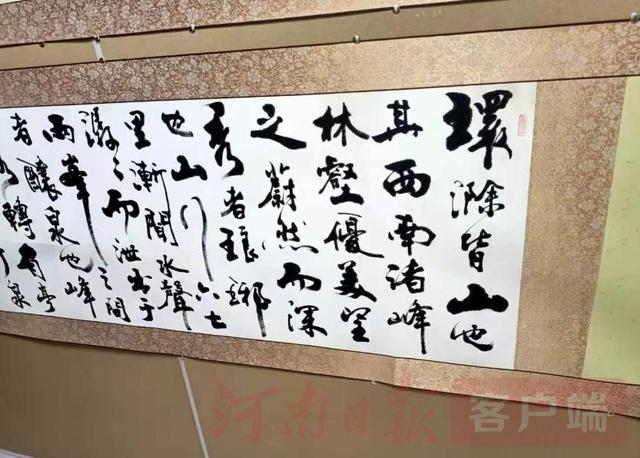 環滁皆山也
其西南诸峰
林壑優美望
之蔚然而深
秀者琅琊
也山行六七
里漸聞水聲
潺々而泄出于
兩峯之间
者釀泉也峰
轉有亭
泉
河南日报 客户端